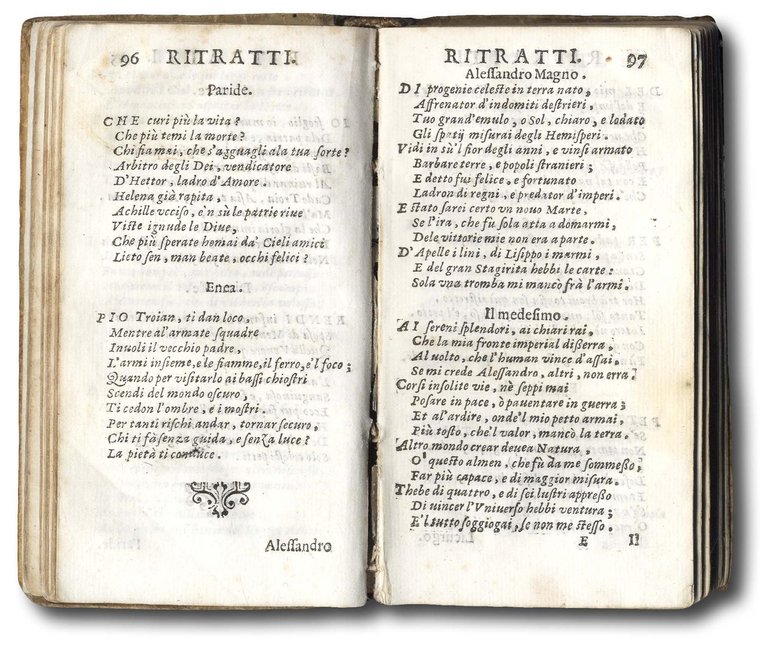 96 RITRATTI.
Paride.
CHE curi più la vita?
Che più temi la morte?
Chi fia mai, che s'agguagli a la tua sorte?
Arbitro degli Dei, vendicatore
D'Hettor, ladro d'Amore.
Helena già rapita,
Achille ucciso, e'n sù le patrie riue
Viste ignude le Diue,
Che più sperate homai da' Cieli amici
Lieto sen, man beate, occhi felici?
Enea.
PIO Troian, ti dan loco,
Mentre al'armate squadre
Inuoli il vecchio padre,
L'armi insieme, e le fiamme, il ferro, e'l foco;
Quando per visitarlo ai bassi chiostri
Scendi del mondo oscuro,
Ti cedon l'ombre, e i mostri.
Per tanti rischi andar, tornar securo,
Chi ti fà senza guida, e senza luce?
La pietà ti conduce.
Alessandro
RITRATTI. 97
Alessandro Magno.
DI progenie celeste in terra nato,
Affrenator d'indomiti destrieri,
Tuo grand'emulo, o Sol, chiaro, e lodato
Gli spatij misurai degli Hemisperi.
Vidi in sù'l fior degli anni, e vinsi armato
Barbare terre, e popoli stranieri;
E detto fui felice, e fortunato
Ladron di regni, e predator d'imperi.
E stato sarei certo vn nouo Marte,
Se l'ira, che fù sola atta a domarmi,
Dele vittorie mie non era a parte.
D'Apelle i lini, di Lisippo i marmi,
E del gran Stagirita hebbi le carte:
Sola vna tromba mi mancò frà l'armi.
Il medesimo.
AI sereni splendori, ai chiari rai,
Che la mia fronte imperial disserra,
Al uolto, che l'human vince d'assai,
Se mi crede Alessandro, altri, non erra?
Corsi insolite vie, nè seppi mai
Posare in pace, ò pauentare in guerra;
Et al'ardire, onde'l mio petto armai,
Più tosto, che'l valor, mancò la terra.
Altro mondo crear deuea Natura,
O' questo almen, che fù da me sommesso,
Far più capace, e di maggior misura.
Thebe di quattro, e di sei lustri appresso
Di uincer l'Vniuerso hebbi ventura;
E'l tutto soggiogai, se non me stesso.
E Il